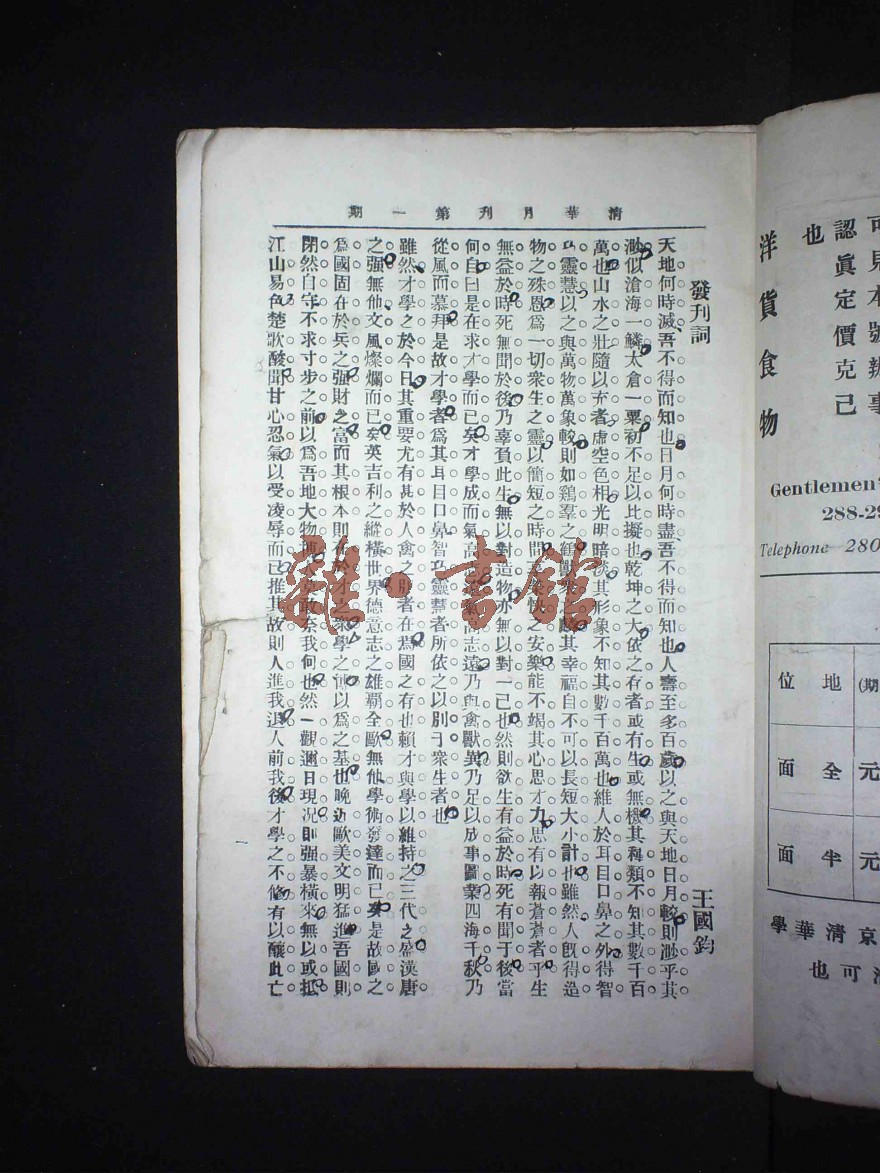 清華月刊第一期
發刊詞
王國鈞
天地何時滅吾不得而知也日月何時盡吾不得而知也人壽至多百歲以之與天地日月較則渺乎其
渺似滄海一鱗太倉一粟初不足以比擬也乾坤之大依之存者或有生或無機其種類不知其數千百
萬也山水之壯隨以充者虛空色相光明暗淡其形象不知其數千百萬也維人於耳目口鼻之外得智
巧靈慧以之與萬物萬象較則如鶏羣之鶴獸衆之麟其幸福自不可以長短大小計也雖然人旣得造
物之殊恩爲一切衆生之靈以簡短之時間享樂快之安樂能不竭其心思才力思有以報蒼蒼者乎生
無益於時死無聞於後乃辜負此生無以對造物亦無以對一己也然則欲生有益於時死有聞于後當
何自曰是在求才學而已矣才學成而氣高志遠氣高志遠乃與禽獸異乃足以成事圖業四海千秋乃
從風而慕拜是故才學者爲其耳目口鼻智巧靈慧者所依之以別于衆生者也
雖然才學之於今日其重要尤有甚於人禽之辨者在焉國之有也賴才與學以維持之三代之盛漢唐
之强無他文風燦爛而已矣英吉利之縱橫世界德意志之雄覇全歐無他學術發達而已矣是故國之
爲國固在於兵之强財之富而其根本則在於才之衆學之博以爲之基也晚近歐美文明猛進吾國則
閉然自守不求寸步之前以爲吾地大物博人莫敢奈我何也然一觀邇日現况則强暴橫來無以或抵
江山易色楚歌酸聞甘心忍氣以受凌辱而已推其故則人進我退人前我後才學之不修有以釀此亡
一
也
認眞定價克己
洋貨食物
Gentlemen'
288-29
Telephone 280
地位
全面
半面
元
元
京清華學
可也